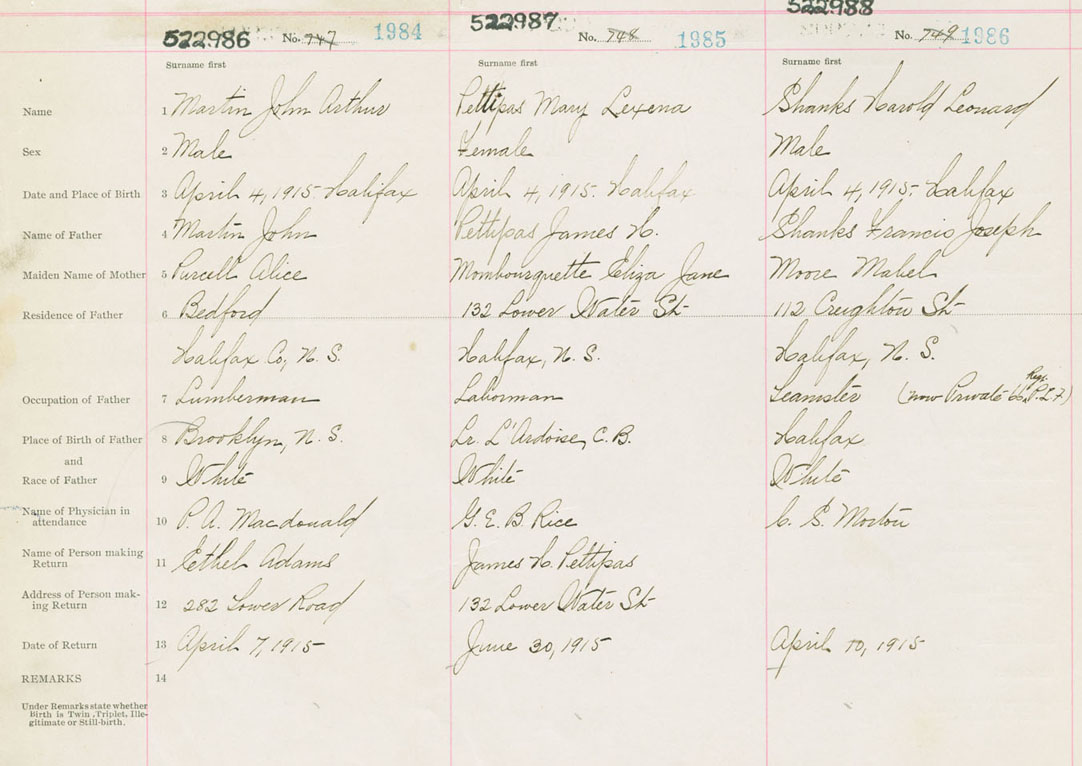 522986 No. 747 1984
522987 No. 748 1985
522988 No. 749 1986
Surname first Surname first Surname first
Name 1 Martin John Arthur Pettipas Mary Lexena Shanks Harold Leonard
Sex 2 Male Female Male
Date and Place of Birth 3 April 4, 1915 - Halifax April 4, 1915 - Halifax April 4, 1915 - Halifax
Name of Father 4 Martin John Pettipas James H. Shanks Francis Joseph
Maiden Name of Mother 5 Purcell Alice Mombourquette Eliza Jane Moore Mabel
Residence of Father 6 Bedford 132 Lower Water St 112 Creighton St
Halifax Co, N. S. Halifax, N. S. Halifax, N. S.
Occupation of Father 7 Lumberman Laborman Teamster (now Private 66 Regt. P.L.F)
Place of Birth of Father 8 Brooklyn, N. S. Lr. L'Ardoise, C. B. Halifax
and
Race of Father 9 White White White
Name of Physician in
attendance 10 P. A. Macdonald G. E. B. Rice C. S. Morton
Name of Person making
Return 11 Ethel Adams James H. Pettipas
Address of Person mak-
ing Return 12 282 Lower Road 132 Lower Water St
Date of Return 13 April 7, 1915 June 30, 1915 April 10, 1915
REMARKS 14
Under Remarks state whether
Birth is Twin, Triplet, Ille-
gitimate or Still-birth.